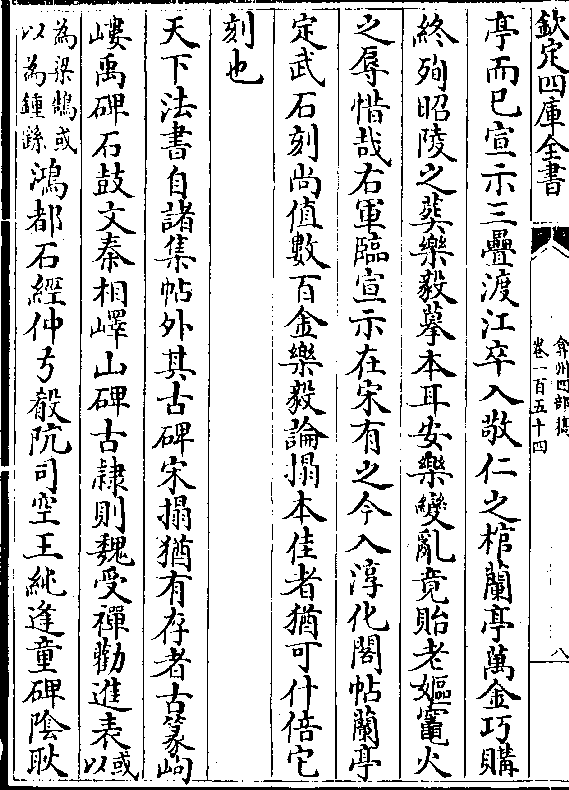 欽定四庫全書
弇州四部稿
卷一百五十四
八
亭而已宣示三疊渡江卒入敬仁之棺蘭亭萬金巧購
終殉昭陵之葬樂毅摹本耳安樂變亂竟貽老嫗竈火
之辱惜哉右軍臨宣示在宋有之今入淳化閣帖蘭亭
定武石刻尚值數百金樂毅論搨本佳者猶可什倍它
刻也
天下法書自諸集帖外其古碑宋搨猶有存者古篆岣
嶁禹碑石鼓文秦相嶧山碑古隸則魏受禪勸進表或以
為梁鵠或以為鍾繇鴻都石經仲方殽阬司空王純逢童碑陰耿